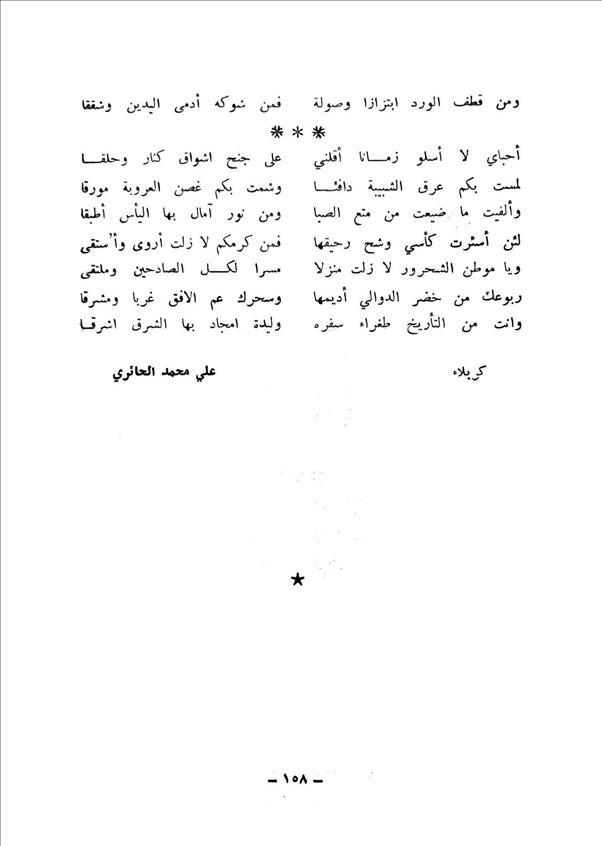 ومن قطف الورد ابتزازا وصولة فمن شوكه أدمى اليدين وشققا
* * *
أحباي لا أسلو زمــانا أقلني على جنح اشواق كنار وحلقــا
لمست بكم عرق الشبيبة دافئــا وشمت بكم غصن العروبة مورقا
وألفيت ما ضيعت من متع الصبا ومن نور آمال بها اليأس أطبقا
لئن أسئرت كأسي وشح رحيقها فمن كرمكم لا زلت أروى وأستقى
ويا موطن الشحرور لا زلت منزلا مسرا لكــل الصادحين وملتقى
ربوعك من خضر الدوالي أديمها وسحرك عم الافق غربا ومشرقا
وانت من التأريخ طغراء سفره وليدة امجاد بها الشرق اشرقــا
كربلاء علي محمد الحائري
★
ـ ١٥٨ ـ